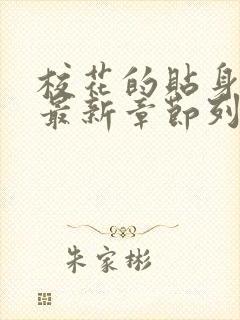 校花的貼身
最新章節列
朱家彬